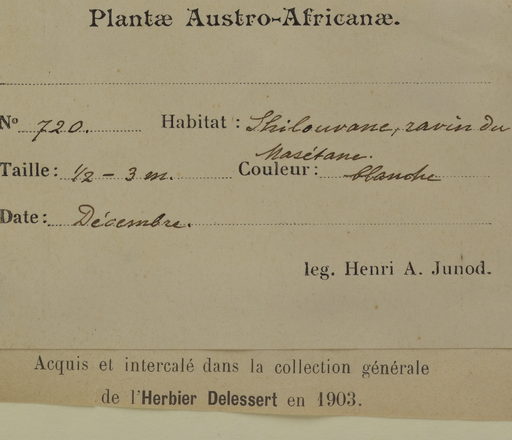 Plantæ Austro-Africanæ.
Nº 720. Habitat : Shilouvane, ravin du
Masétane.
Taille : ½ – 3 m. Couleur : blanche
Date : Décembre.
leg. Henri A. Junod.
Acquis et intercalé dans la collection générale
de l'Herbier Delessert en 1903.